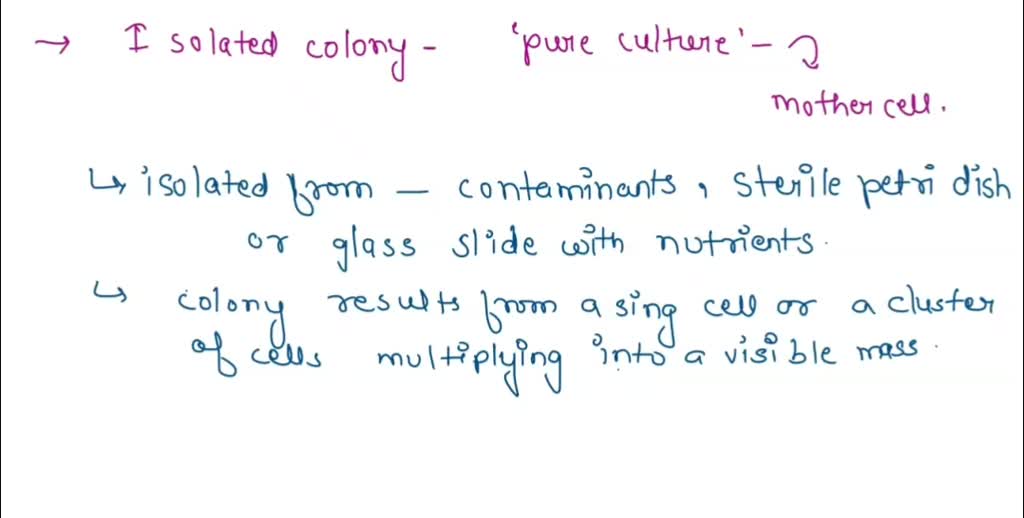 → Isolated colony - 'pure culture' - ↷
mother cell.
↳ isolated from — contaminants, sterile petri dish
or glass slide with nutrients.
↳ colony results from a sing cell or a cluster
of cells multiplying into a visible mass.